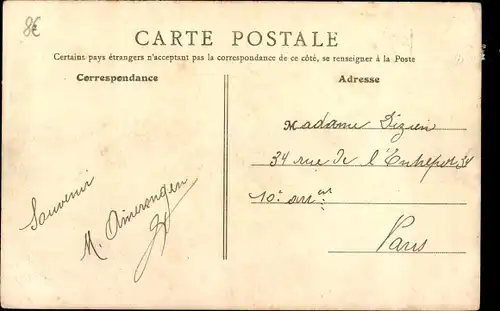 8€
CARTE POSTALE
Certains pays étrangers n'acceptent pas la correspondance de ce côté, se renseigner à la Poste
Correspondance
Adresse
Madame Dizien
34 rue de l'Entrepot 34
10e arr
Paris
Souvenir
M.